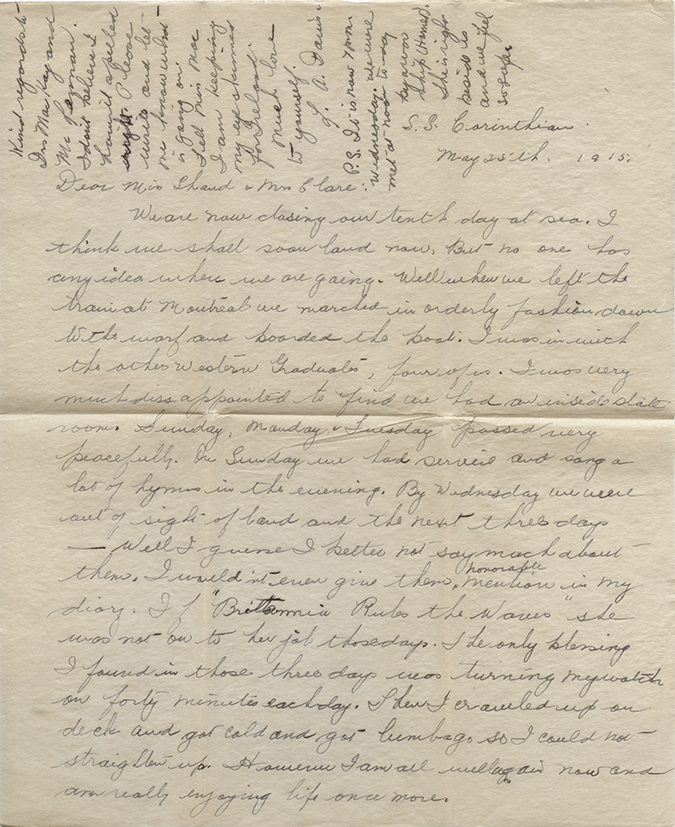 S.S. Corinthian.
May 25th, 1915.
Dear Miss Shaud & Mrs Clare:
We are now closing our tenth day at sea. I
think we shall soon land now. But no one has
any idea where we are going. Well when we left the
train at Montreal we marched in orderly fashion down
to the warf and boarded the boat. I was in with
the other Western Graduates, four of us. I was very
much dissappointed to find we had an inside state
room. Sunday, Monday & Tuesday passed very
peacefully. On Sunday we had service and sang a
lot of hymns in the evening. By Wednesday we were
out of sight of land and the next three days
— Well I guess I better not say much about
them. I would'nt even give them honorable mention in my
diary. If "Brittannia Rules the Waves" she
was not on to her job those days. The only blessing
I found in those three days was turning my watch
on forty minutes each day. Then I crawled up on
deck and got cold and got lumbago so I could not
straighten up. However I am all well again now and
am really enjoying life once more.
Kind regards to
Mrs MacKay and
Mr
I don't believe I
have it spelled
wright. Please
write and let
me know what
is going on.
Tell Miss Mac
I am keeping
my eye skinned
for Ireland.
Much love
to yourself.
L. A. Davis.
P.S. It is now noon
Wednesday. We were
met at noon to-day
by a war
ship
She is right
beside us
and we feel
so safe.